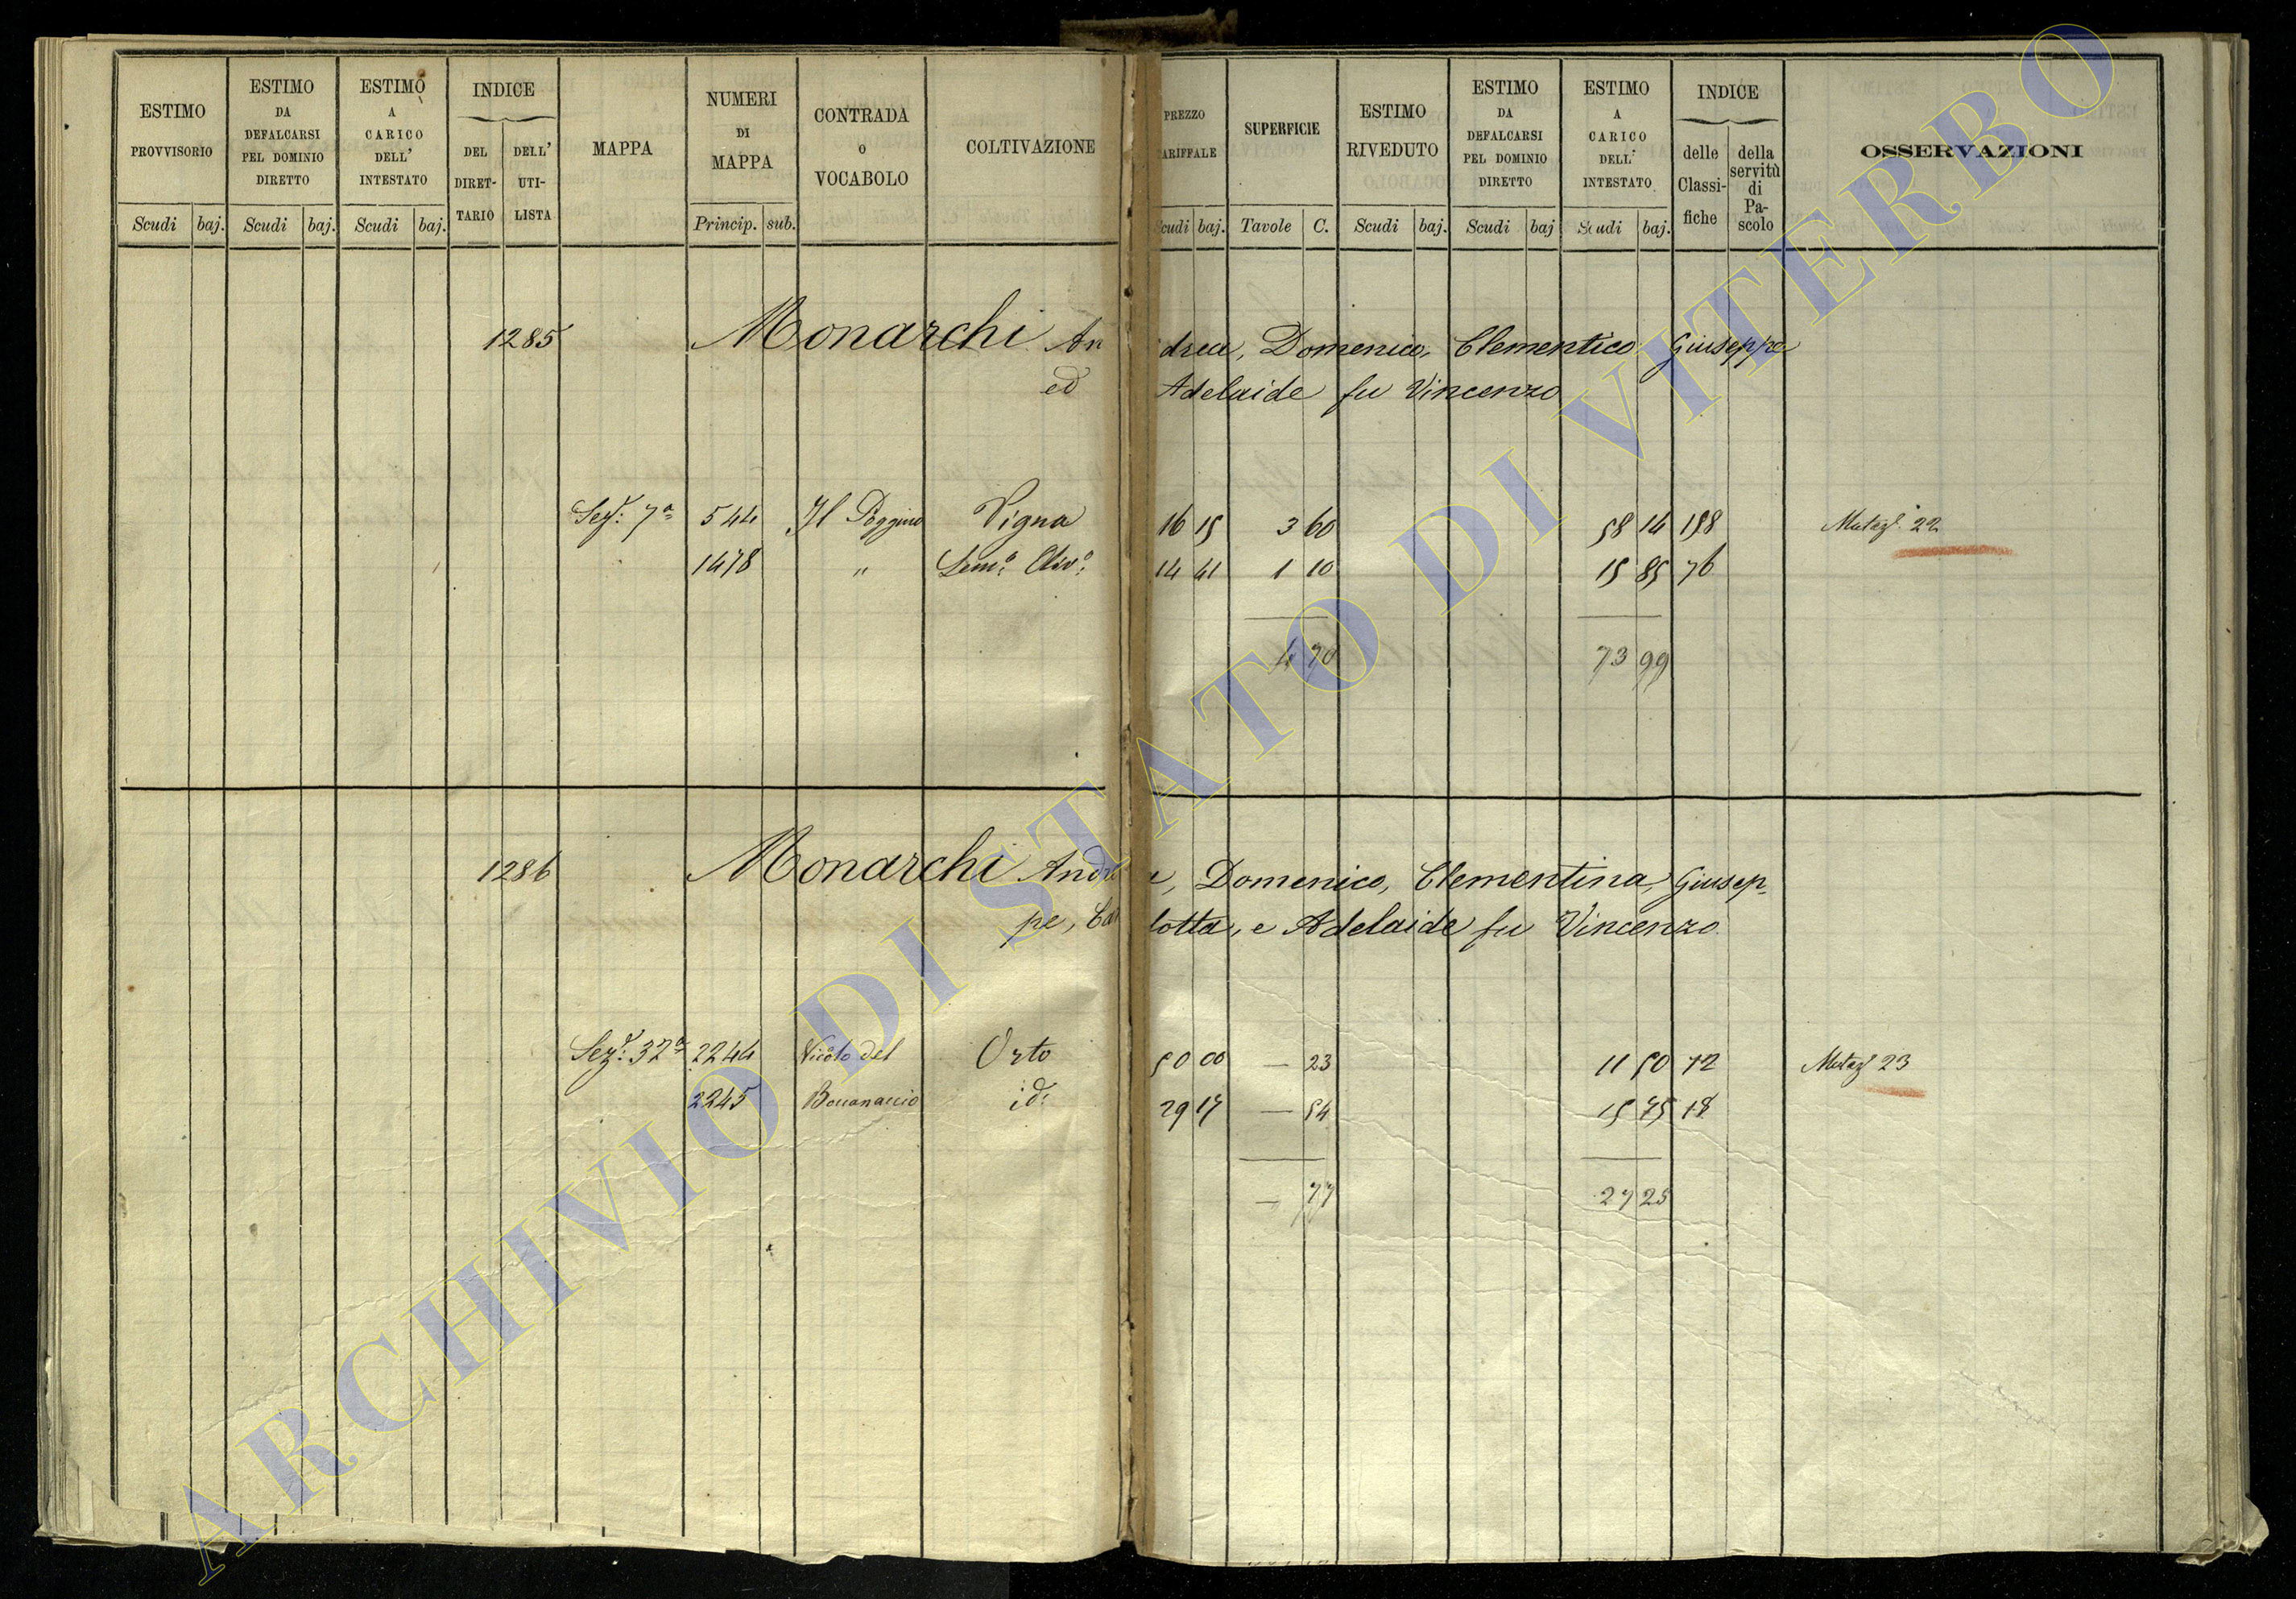 ESTIMO PROVVISORIO
Scudi baj.
ESTIMO DA DEFALCARSI PEL DOMINIO DIRETTO
Scudi baj.
ESTIMO A CARICO DELL' INTESTATO
Scudi baj.
INDICE
DEL DIRET-TARIO
DELL' UTI-LISTA
MAPPA
NUMERI DI MAPPA
Princip. sub.
CONTRADA O VOCABOLO
COLTIVAZIONE
PREZZO ARIFFALE
cudi baj.
SUPERFICIE
Tavole C.
ESTIMO RIVEDUTO
Scudi baj.
ESTIMO DA DEFALCARSI PEL DOMINIO DIRETTO
Scudi baj
ESTIMO A CARICO DELL' INTESTATO
Scudi baj.
INDICE
delle Classi-fiche
della servitù di Pa-scolo
OSSERVAZIONI
1285 Monarchi Andrea, Domenico, Clementico Giuseppe
ed Adelaide fu Vincenzo
Sez.e 7a 544 Il Poggino Vigna 16 15 3 60 58 14 158 Mutaz.e 22
1478 " Sem.o Oliv.o 14 41 1 10 15 85 76
4 70 73 99
1286 Monarchi Andrea, Domenico, Clementina, Giusep-
pe, Carlotta, e Adelaide fu Vincenzo
Sez.e 32a 2244 Vicolo del Orto 50 00 — 23 11 50 12 Mutaz.e 23
2245 id. 29 17 — 54 15 75 18
— 77 27 25
ARCHIVIO DI STATO DI VITERBO